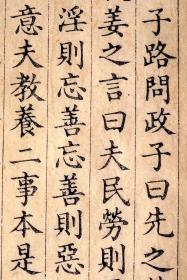 子路問政子曰先之
姜之言曰夫民勞則
淫則忘善忘善則惡
意夫教養二事本是